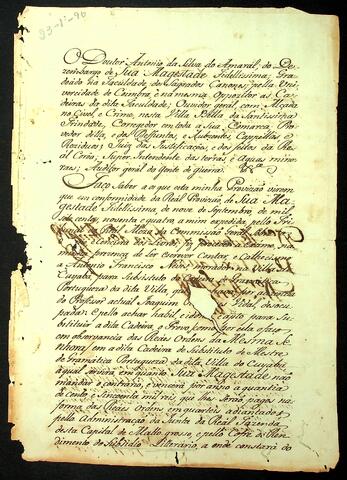 O Doutor Antonio da Silva do Amaral, do De-
zembargo de Sua Magestade Fidellissima; Gra-
duado na Faculdade, dos Sagrados Canones, pella Uni-
vercidade de Coimbra, e na mesma Oppozitor ás Ca-
deiras da dita Faculdade; Ouvidor geral, com Alçada
no Civel, e Crime, nesta Villa Bella da Santissima
Trindade, Corregedor em toda a Sua Comarca, Pro-
vedor della, e dos Deffuntos, e Auzentes, Cappellas, e
Reziduos; Juis das Justificaçoens, e dos feitos da Re-
al Coroa; Super Intendente das terras, e Agoas mine-
raes; Auditor geral da Gente de guerra. &ª
Faço Saber a os que esta minha Provizão virem
que em conformidade da Real Provizão, de Sua Ma-
gestade Fidelissima, de nove de Septembro, de mil,
Sete centos, noventa e quatro, a mim expedida, pello
Real Meza da Commissão geral
e Cencura dos Livros,
minha prezença de Ler escrever Contar, e Cathecismo
a Antonio Francisco morador na Villa do
Cuyabá, para Substituto da Cadeira de Gramatica
Portugueza da dita Villa,
do Professor actual Joaquim Vidal, desocu-
pada: E pello achar habil, e apto para Su-
bstituir a dita Cadeira, o Provo
em observancia das Reais Ordens da Mesma Se-
nhora, em a dita Cadeira de Substituto de Mestre
de Gramatica Portugueza, da dita Villa do Cuyabá,
a qual Servirá em quanto Sua Magestade não
mandar o contrario, e vencerá por anno a quantia
de Cento, e Sincoenta mil reis, que lhe Serão, pagos na
forma das Reais Ordens em quarteis adiantados
pella Administração da Junta da Real Fazenda
desta Capital de Matto grosso, e pello Cofre do Ren-
dimento do Subsidio Literario, a onde constará do